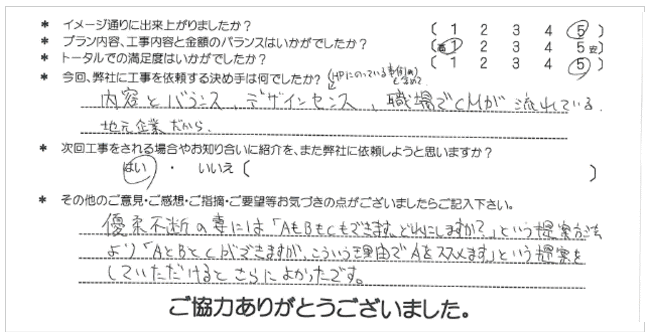 * イメージ通りに出来上がりましたか? ( 1 2 3 4 5 )
* プラン内容、工事内容と金額のバランスはいかがでしたか? (高 1 2 3 4 5 安)
* トータルでの満足度はいかがでしたか? ( 1 2 3 4 5 )
* 今回、弊社に工事を依頼する決め手は何でしたか? (HPにのっている事例も含めて)
内容とバランス、デザインセンス、職場でCMが流れている。
地元企業だから。
* 次回工事をされる場合やお知り合いに紹介を、また弊社に依頼しようと思いますか?
はい ・ いいえ ( )
* その他のご意見・ご感想・ご指摘・ご要望等お気づきの点がございましたらご記入下さい。
優柔不断の妻には「AもBもCもできます。どれにしますか?」という提案方法
より「AとBとCができますが、こういう理由でAをススメます」という提案を
していただけるとさらによかったです。
ご協力ありがとうございました。